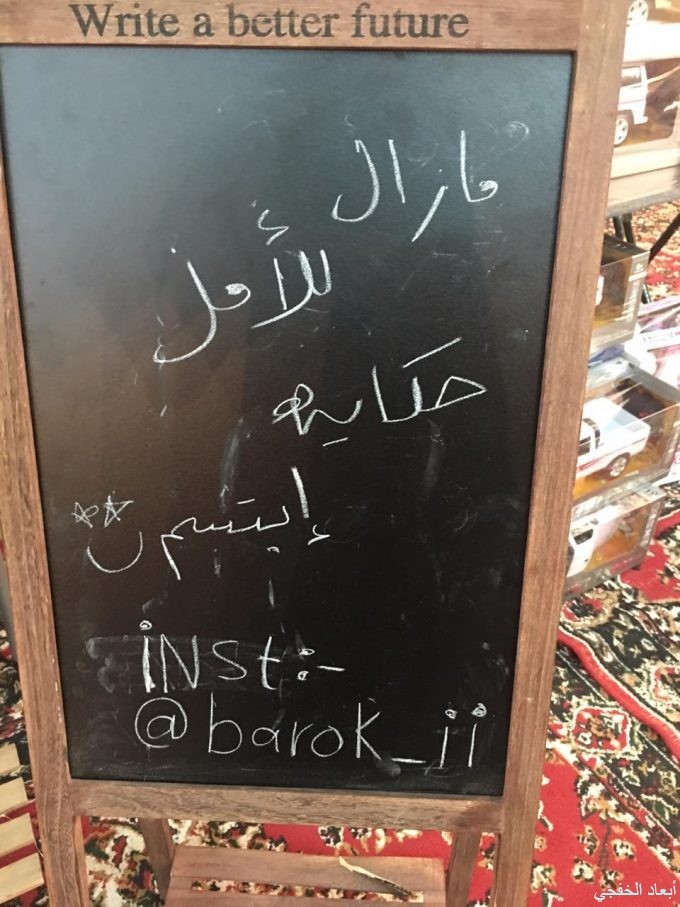 Write a better future
مازال
للأمل
حكايه
إبتسم
inst:-
@barok_ii
أبعاد الخفجي